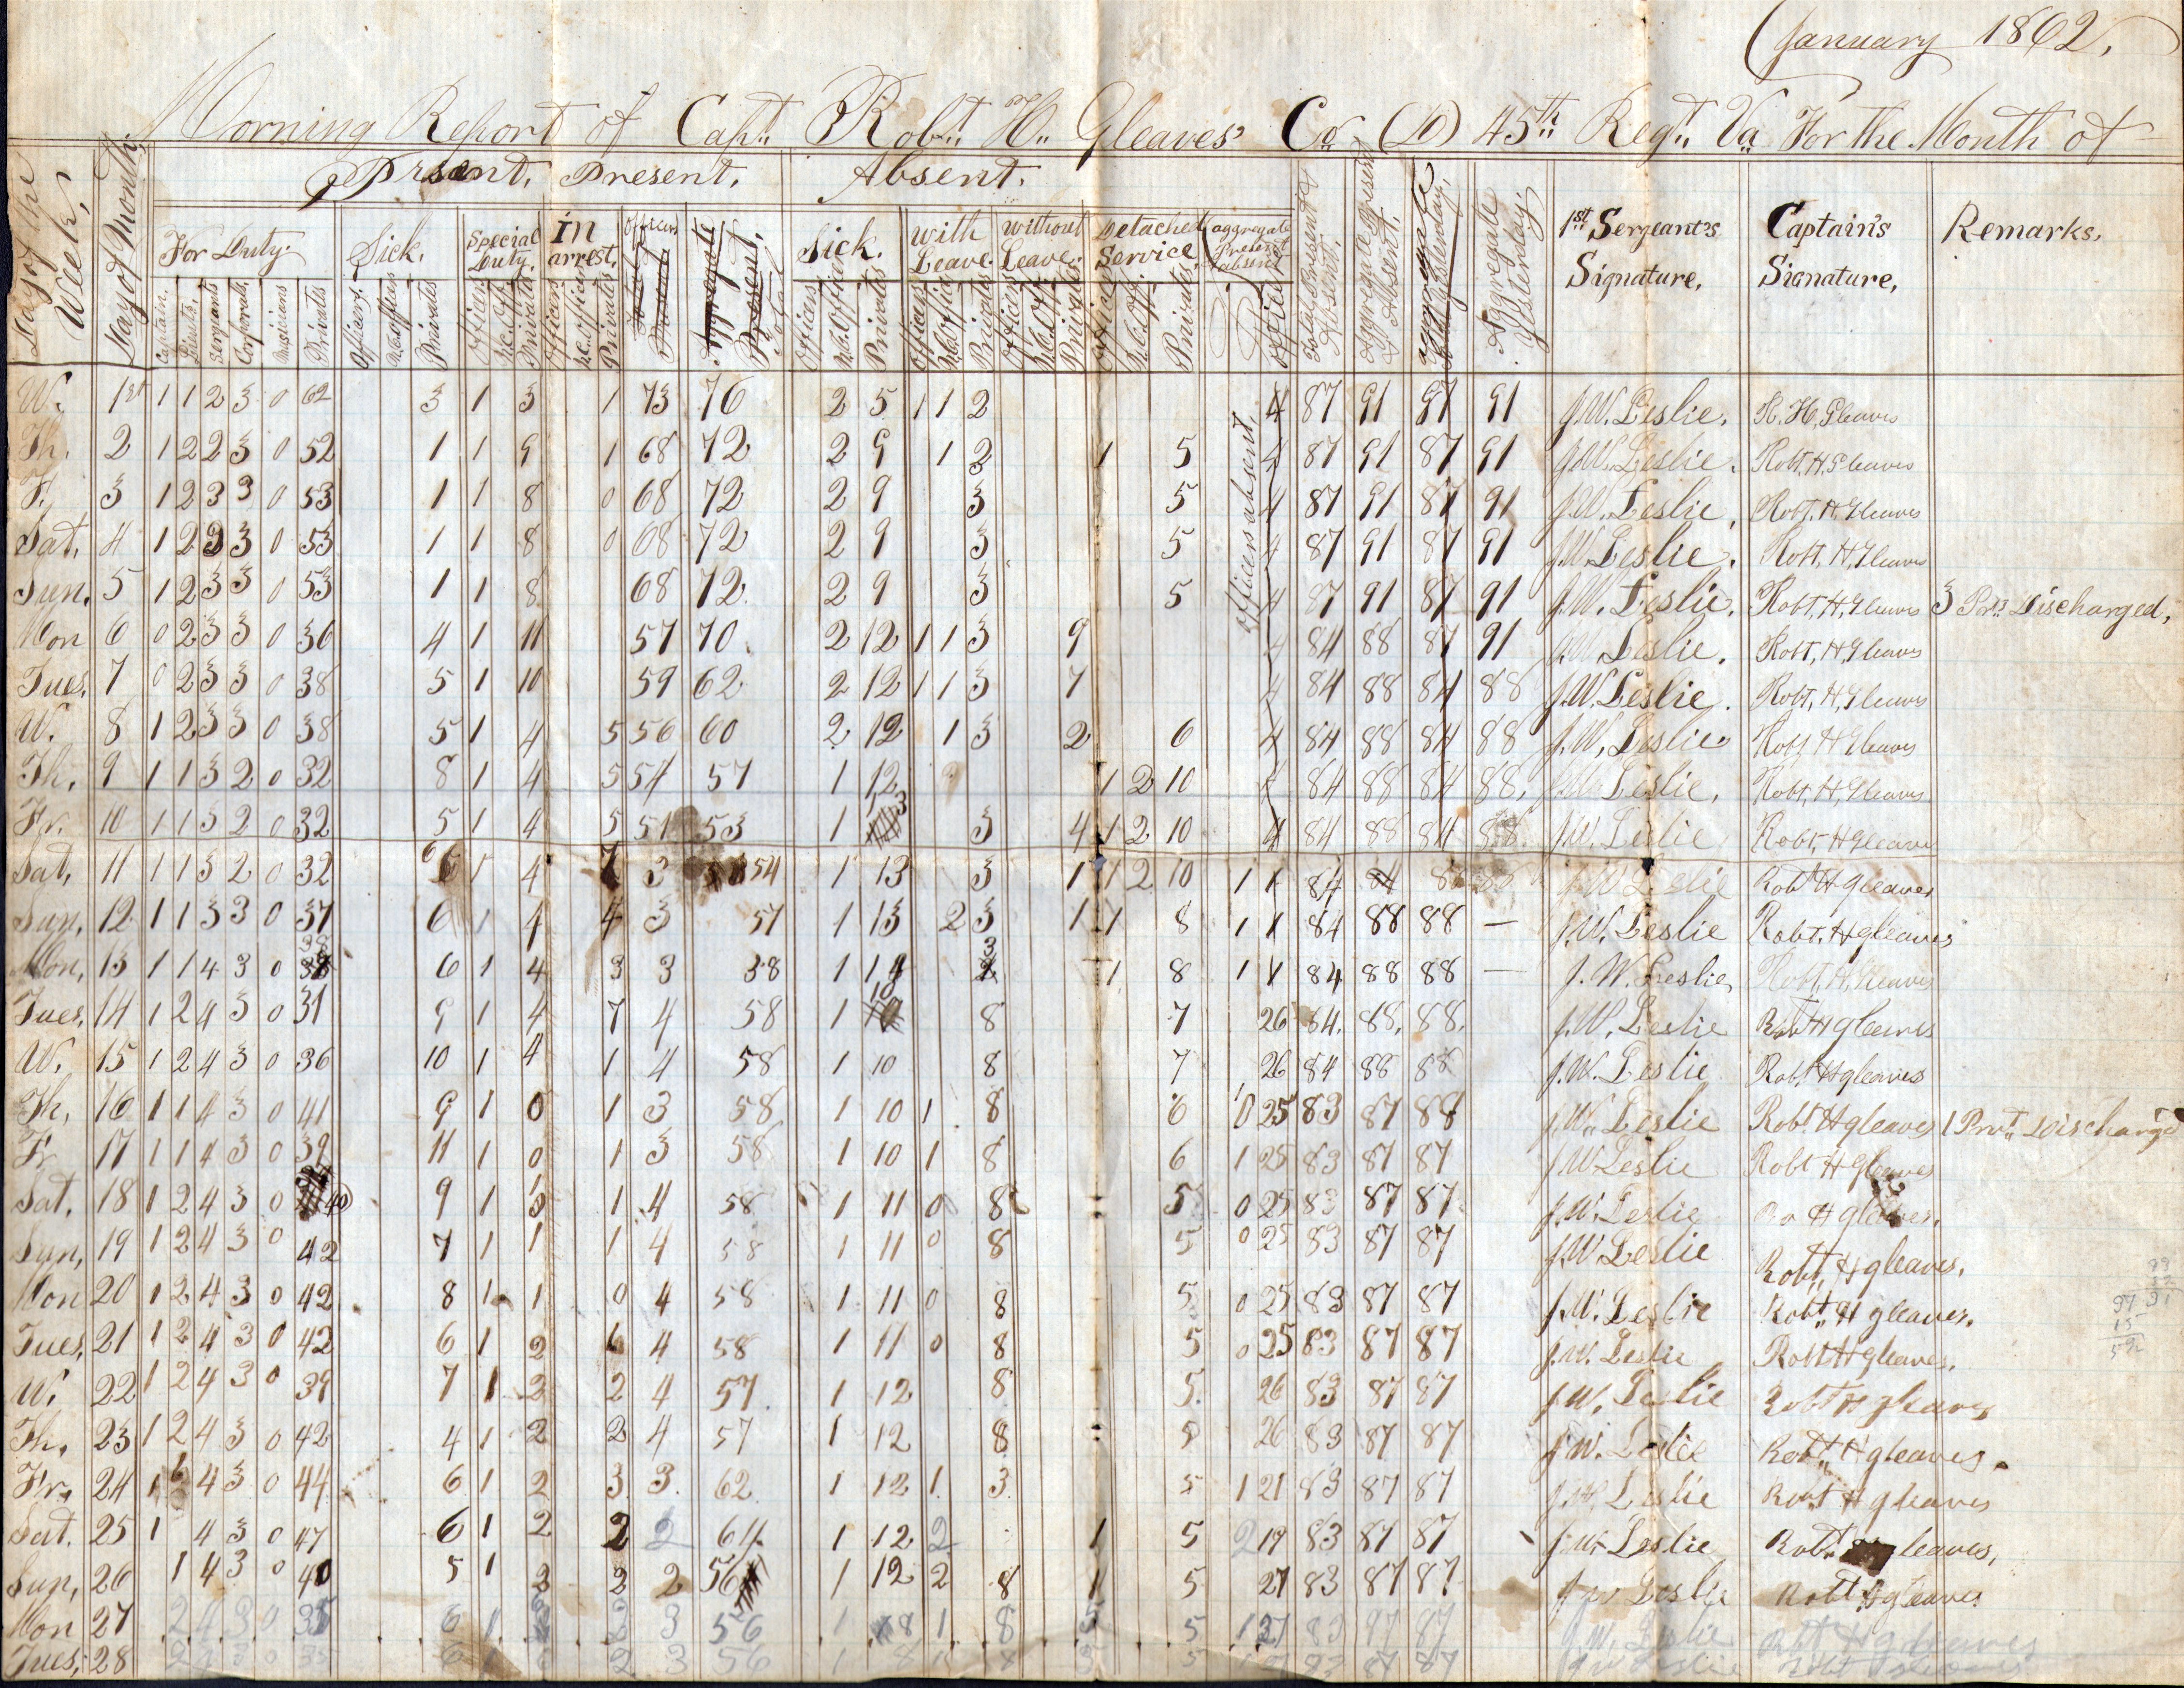 January 1862.
Morning Report of Capt. Robt. H. Gleaves' Co. (D) 45th Regt. Va For the Month of
Day of the Week, Day of Month, Prsent, Present, Absent.
For Duty. Sick. Special Duty. In arrest, Officers Aggregate Present, Sick. with Leave. without Leave. Detached Service, aggregate Present & absent Total Present & Absent, Aggregate Present & Absent, Aggregate Yesterday, Aggregate Yesterday, 1st Sergeant's Signature, Captain's Signature, Remarks,
Captain. Lieuts. Sergeants Corporals, Musicians Privates Officers N.C. officers Privates Officers N.C. Off. Privates Officers N.C. officers Privates Officers N.C. Officers Privates Officers N.C. Off. Privates Officers N.C. Off. Privates N.C. Off. Privates
officers absent
W. 1st 1 1 2 3 0 62 3 1 3 1 73 76 2 5 1 1 2 4 87 91 91 91 J.W. Leslie. R. H. Gleaves
Th. 2 1 2 2 3 0 52 1 1 9 1 68 72 2 9 1 2 1 5 4 87 91 87 91 J.W. Leslie. Robt. H. Gleaves
F. 3 1 2 3 3 0 53 1 1 8 0 68 72 2 9 3 5 4 87 91 87 91 J.W. Leslie, Robt. H. Gleaves
Sat, 4 1 2 3 3 0 53 1 1 8 0 68 72 2 9 3 5 4 87 91 87 91 J.W. Leslie. Robt, H, Gleaves
Sun. 5 1 2 3 3 0 53 1 1 8 68 72. 2 9 3 5 4 87 91 87 91 J.W. Leslie. Robt, H, Gleaves 3 Prts Discharged,
Mon 6 0 2 3 3 0 36 4 1 11 57 70. 2 12 1 1 3 9 4 84 88 87 91 J.W. Leslie. Robt, H, Gleaves
Tues. 7 0 2 3 3 0 38 5 1 10 59 62 2 12 1 1 3 7 4 84 88 84 88 J.W. Leslie. Robt, H, Gleaves
W. 8 1 2 3 3 0 38 5 1 4 5 56 60 2 12 1 3 2 6 4 84 88 84 88 J.W. Leslie. Robt H Gleaves
Th. 9 1 1 3 2 0 32 8 1 4 5 54 57 1 12 1 2 10 4 84 88 84 88, Leslie, Robt, H, Gleaves
Fr. 10 1 1 3 2 0 32 5 1 4 5 51 53 1 3 3 4 1 2 10 4 84 88 84 88. J.W. Leslie Robt, H Gleaves
Sat, 11 1 1 3 2 0 32 6 1 4 7 3 54 1 13 3 1 1 2 10 1 1 84 84 J W Leslie Robt H gleaves
Sun, 12 1 1 3 3 0 37 6 1 4 4 3 57 1 13 2 3 1 1 8 1 1 84 88 88 — J.W. Leslie Robt, H gleaves
Mon, 13 1 1 4 3 0 38 6 1 4 3 3 38 1 14 3 1 8 1 1 84 88 88 — J. W. Leslie, Robt, H, Gleaves
Tues, 14 1 2 4 3 0 31 9 1 4 7 4 58 1 10 8 7 26 84. 88, 88. J.W. Leslie Robt H gleaves
W. 15 1 2 4 3 0 36 10 1 4 1 4 58 1 10 8 7 26 84 88 88 J.W. Leslie Robt H gleaves
Th, 16 1 1 4 3 0 41 9 1 0 1 3 58 1 10 1 8 6 25 83 87 88 J.W. Leslie Robt H gleaves 1 Prvt. Discharge
Fr 17 1 1 4 3 0 39 11 1 0 1 3 58 1 10 1 8 6 1 25 83 87 87 J W Leslie Robt H gleaves
Sat. 18 1 2 4 3 0 40 9 1 0 1 4 58 1 11 0 8 5 0 25 83 87 87 J.W. Leslie H gleaves.
Sun, 19 1 2 4 3 0 42 7 1 1 1 4 58 1 11 0 8 5 0 25 83 87 87 J.W Leslie Robt, H gleaves.
Mon 20 1 2 4 3 0 42 8 1 1 0 4 58 1 11 0 8 5 0 25 83 87 87 J.W. Leslie Robt. H gleaves.
Tues, 21 1 2 4 3 0 42 6 1 2 4 58 1 11 0 8 5 0 25 83 87 87 J.W. Leslie Robt H gleaves.
W. 22 1 2 4 3 0 39 7 1 2 2 4 57. 1 12 8 5. 26 83 87 87 J.W. Leslie Robt H gleaves
Th. 23 1 2 4 3 0 42 4 1 2 2 4 57 1 12 8 5 26 83 87 87 J W. Leslie Robt. H gleaves.
Fr. 24 1 4 3 0 44 6 1 2 3 3. 62. 1 12 1. 3. 5 1 21 83 87 87 J.W. Leslie Robt H gleaves
Sat. 25 1 4 3 0 47 6 1 2 2 2 64 1 12 2 1 5 2 19 83 87 87 J.W. Leslie Robt. leaves,
Sun, 26 1 4 3 0 40 5 1 2 2 2 56 1 12 2 8 1 5 27 83 87 87 Leslie Robt H gleaves
Mon 27 2 4 3 0 35 6 1 2 3 56 1 8 1 8 5 5 1 27 83 87 87 J.W. Leslie Robt H gleaves
Tues, 28 2 3 56 1 8 5 87 87 J W Leslie